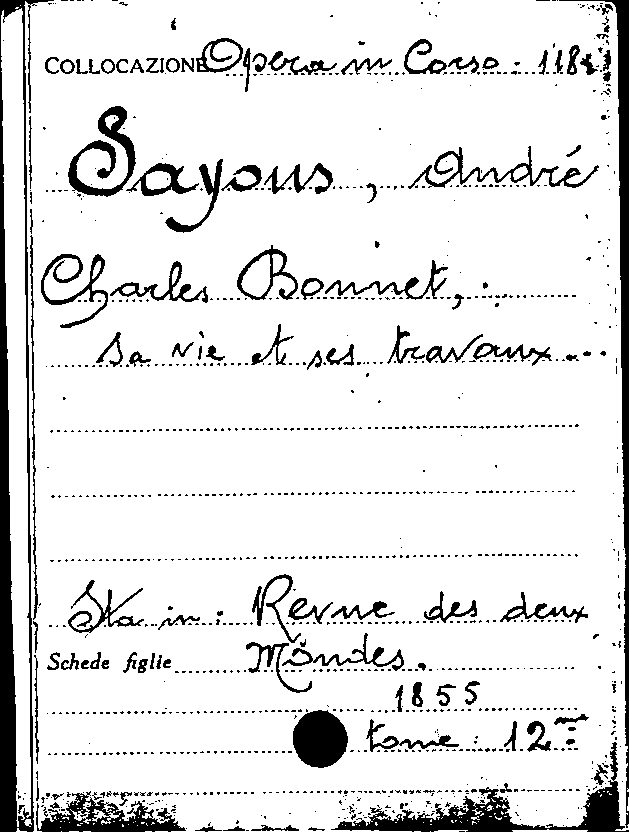 COLLOCAZIONE Opera in Corso: 118
Sayous, André
Charles Bonnet,
sa vie et ses travaux...
Sta in: Revue des deux
Schede figlie Mondes.
1855
tome: 12